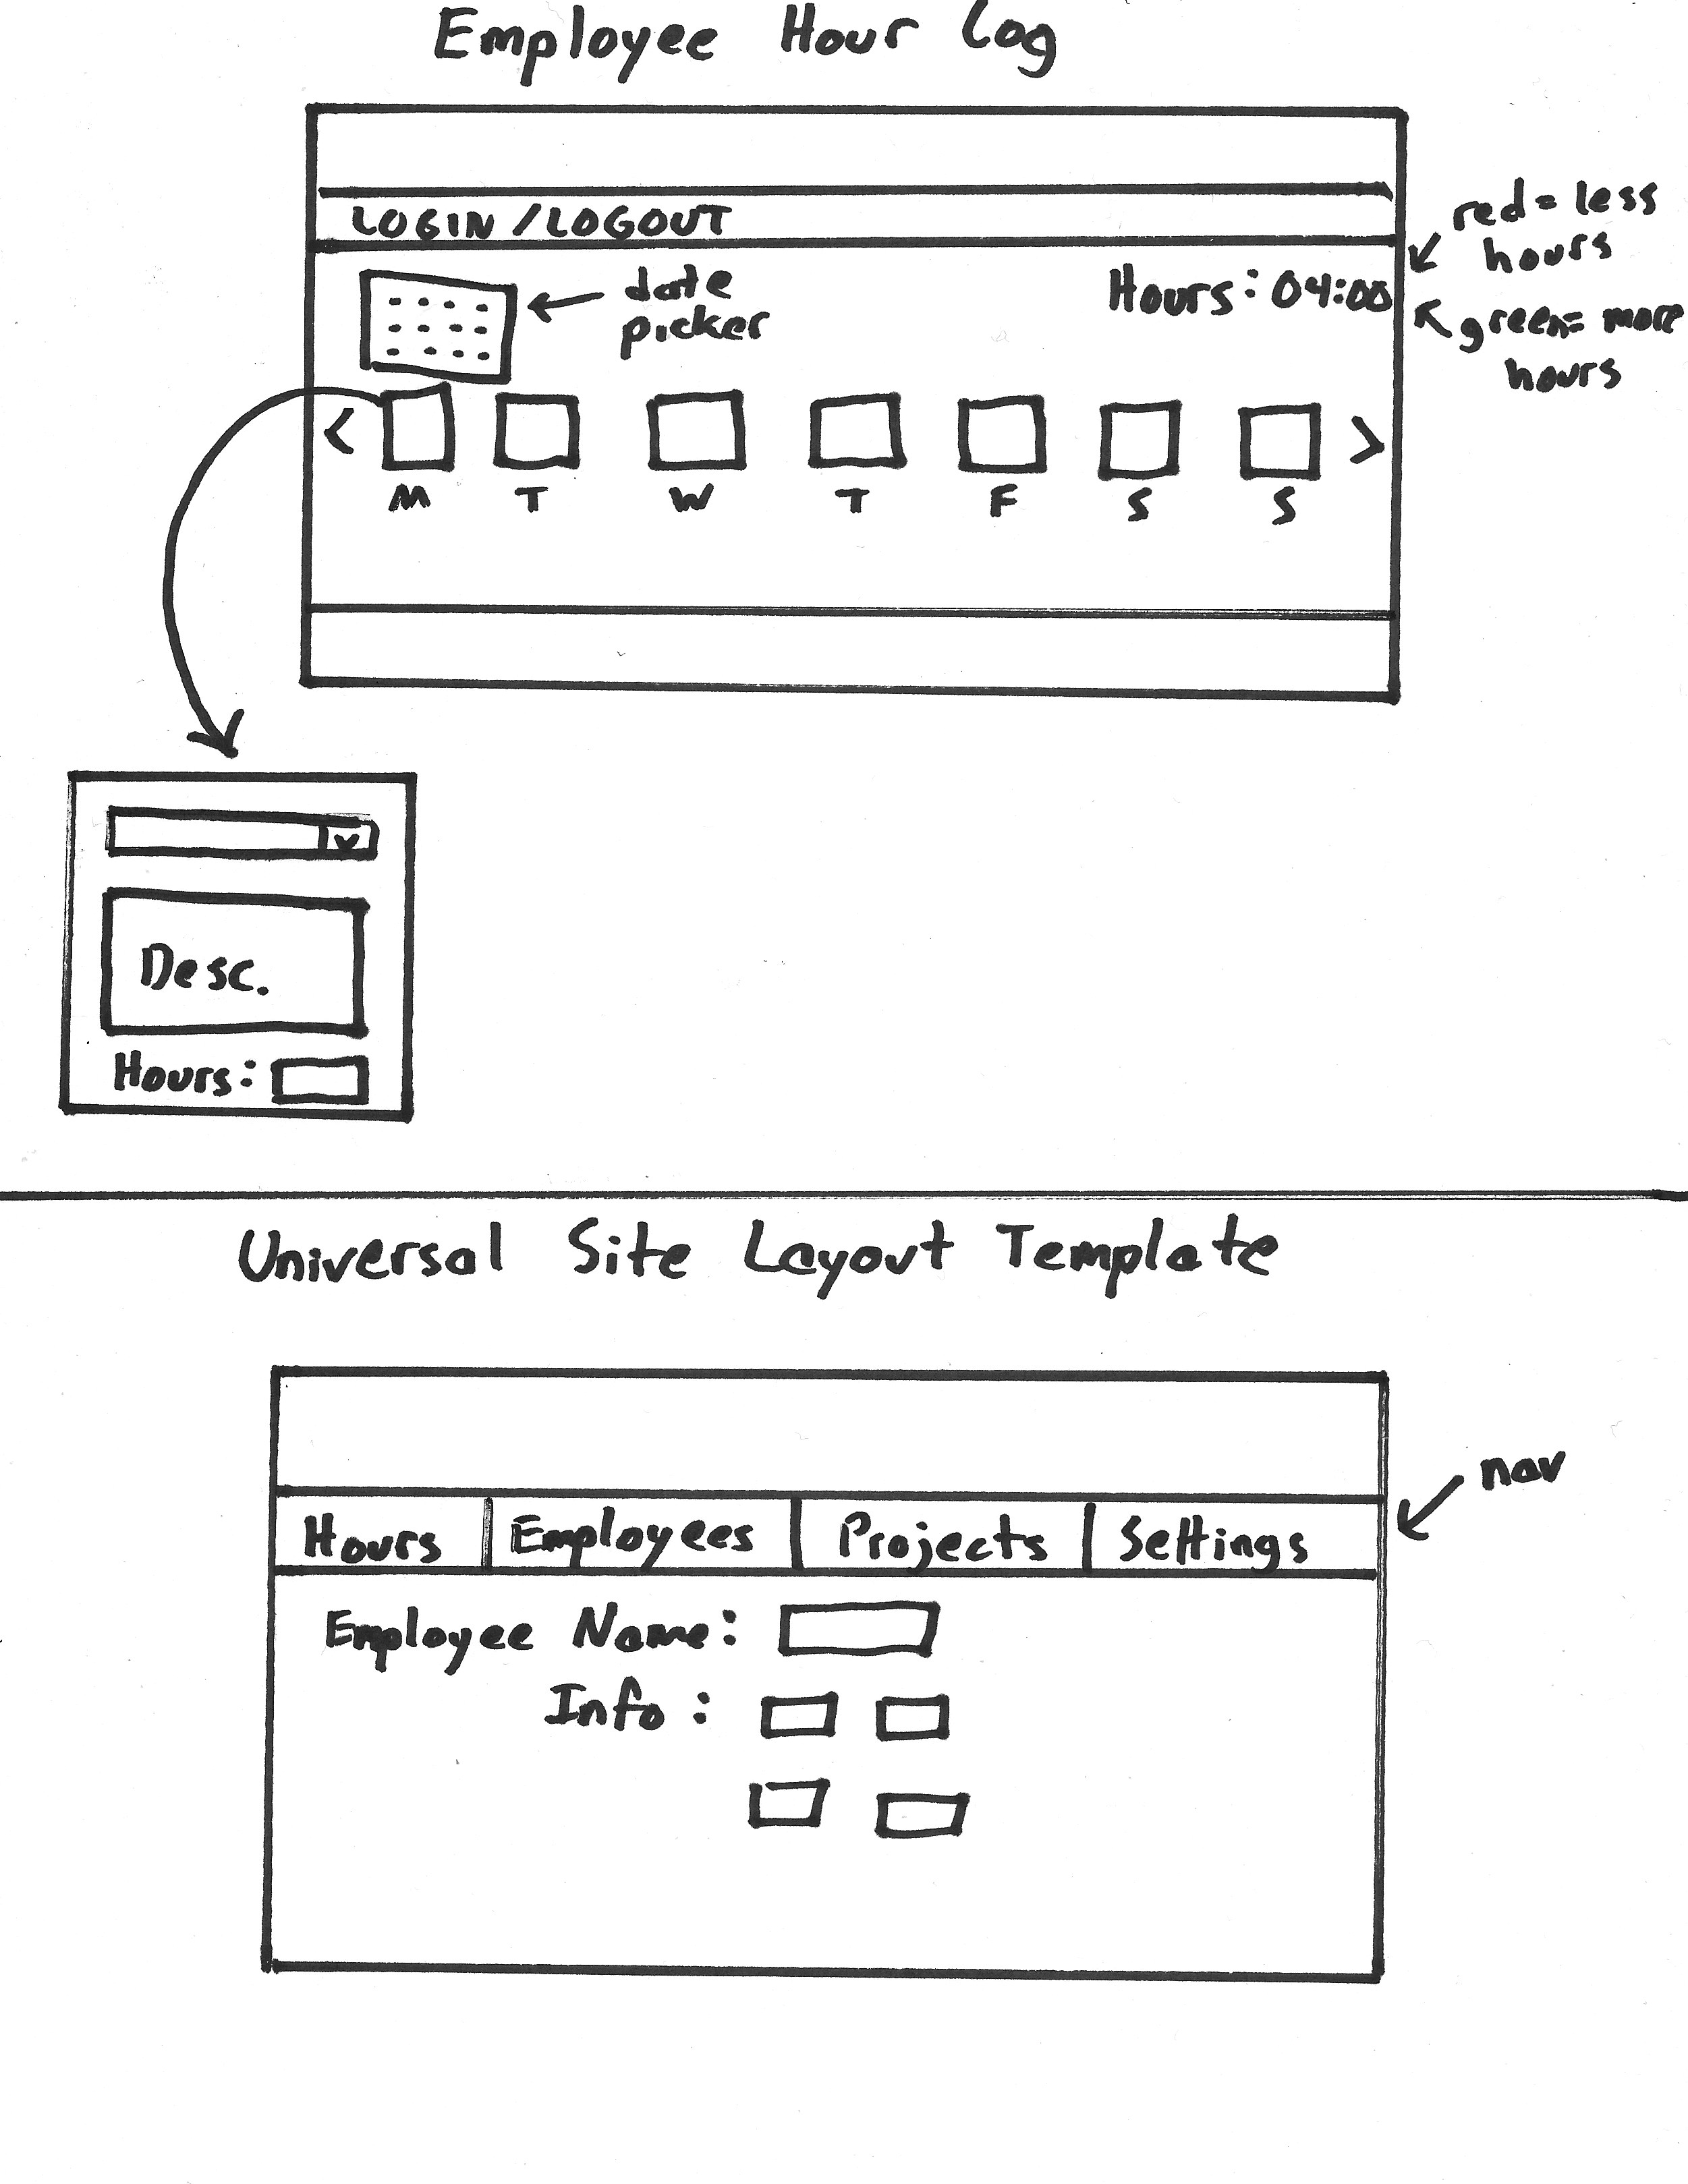 Employee Hour Log
LOGIN / LOGOUT
red = less
hours
date
picker
Hours: 04:00
green = more
hours
< >
M T W T F S S
Desc.
Hours:
Universal Site Layout Template
nav
Hours Employees Projects Settings
Employee Name:
Info: